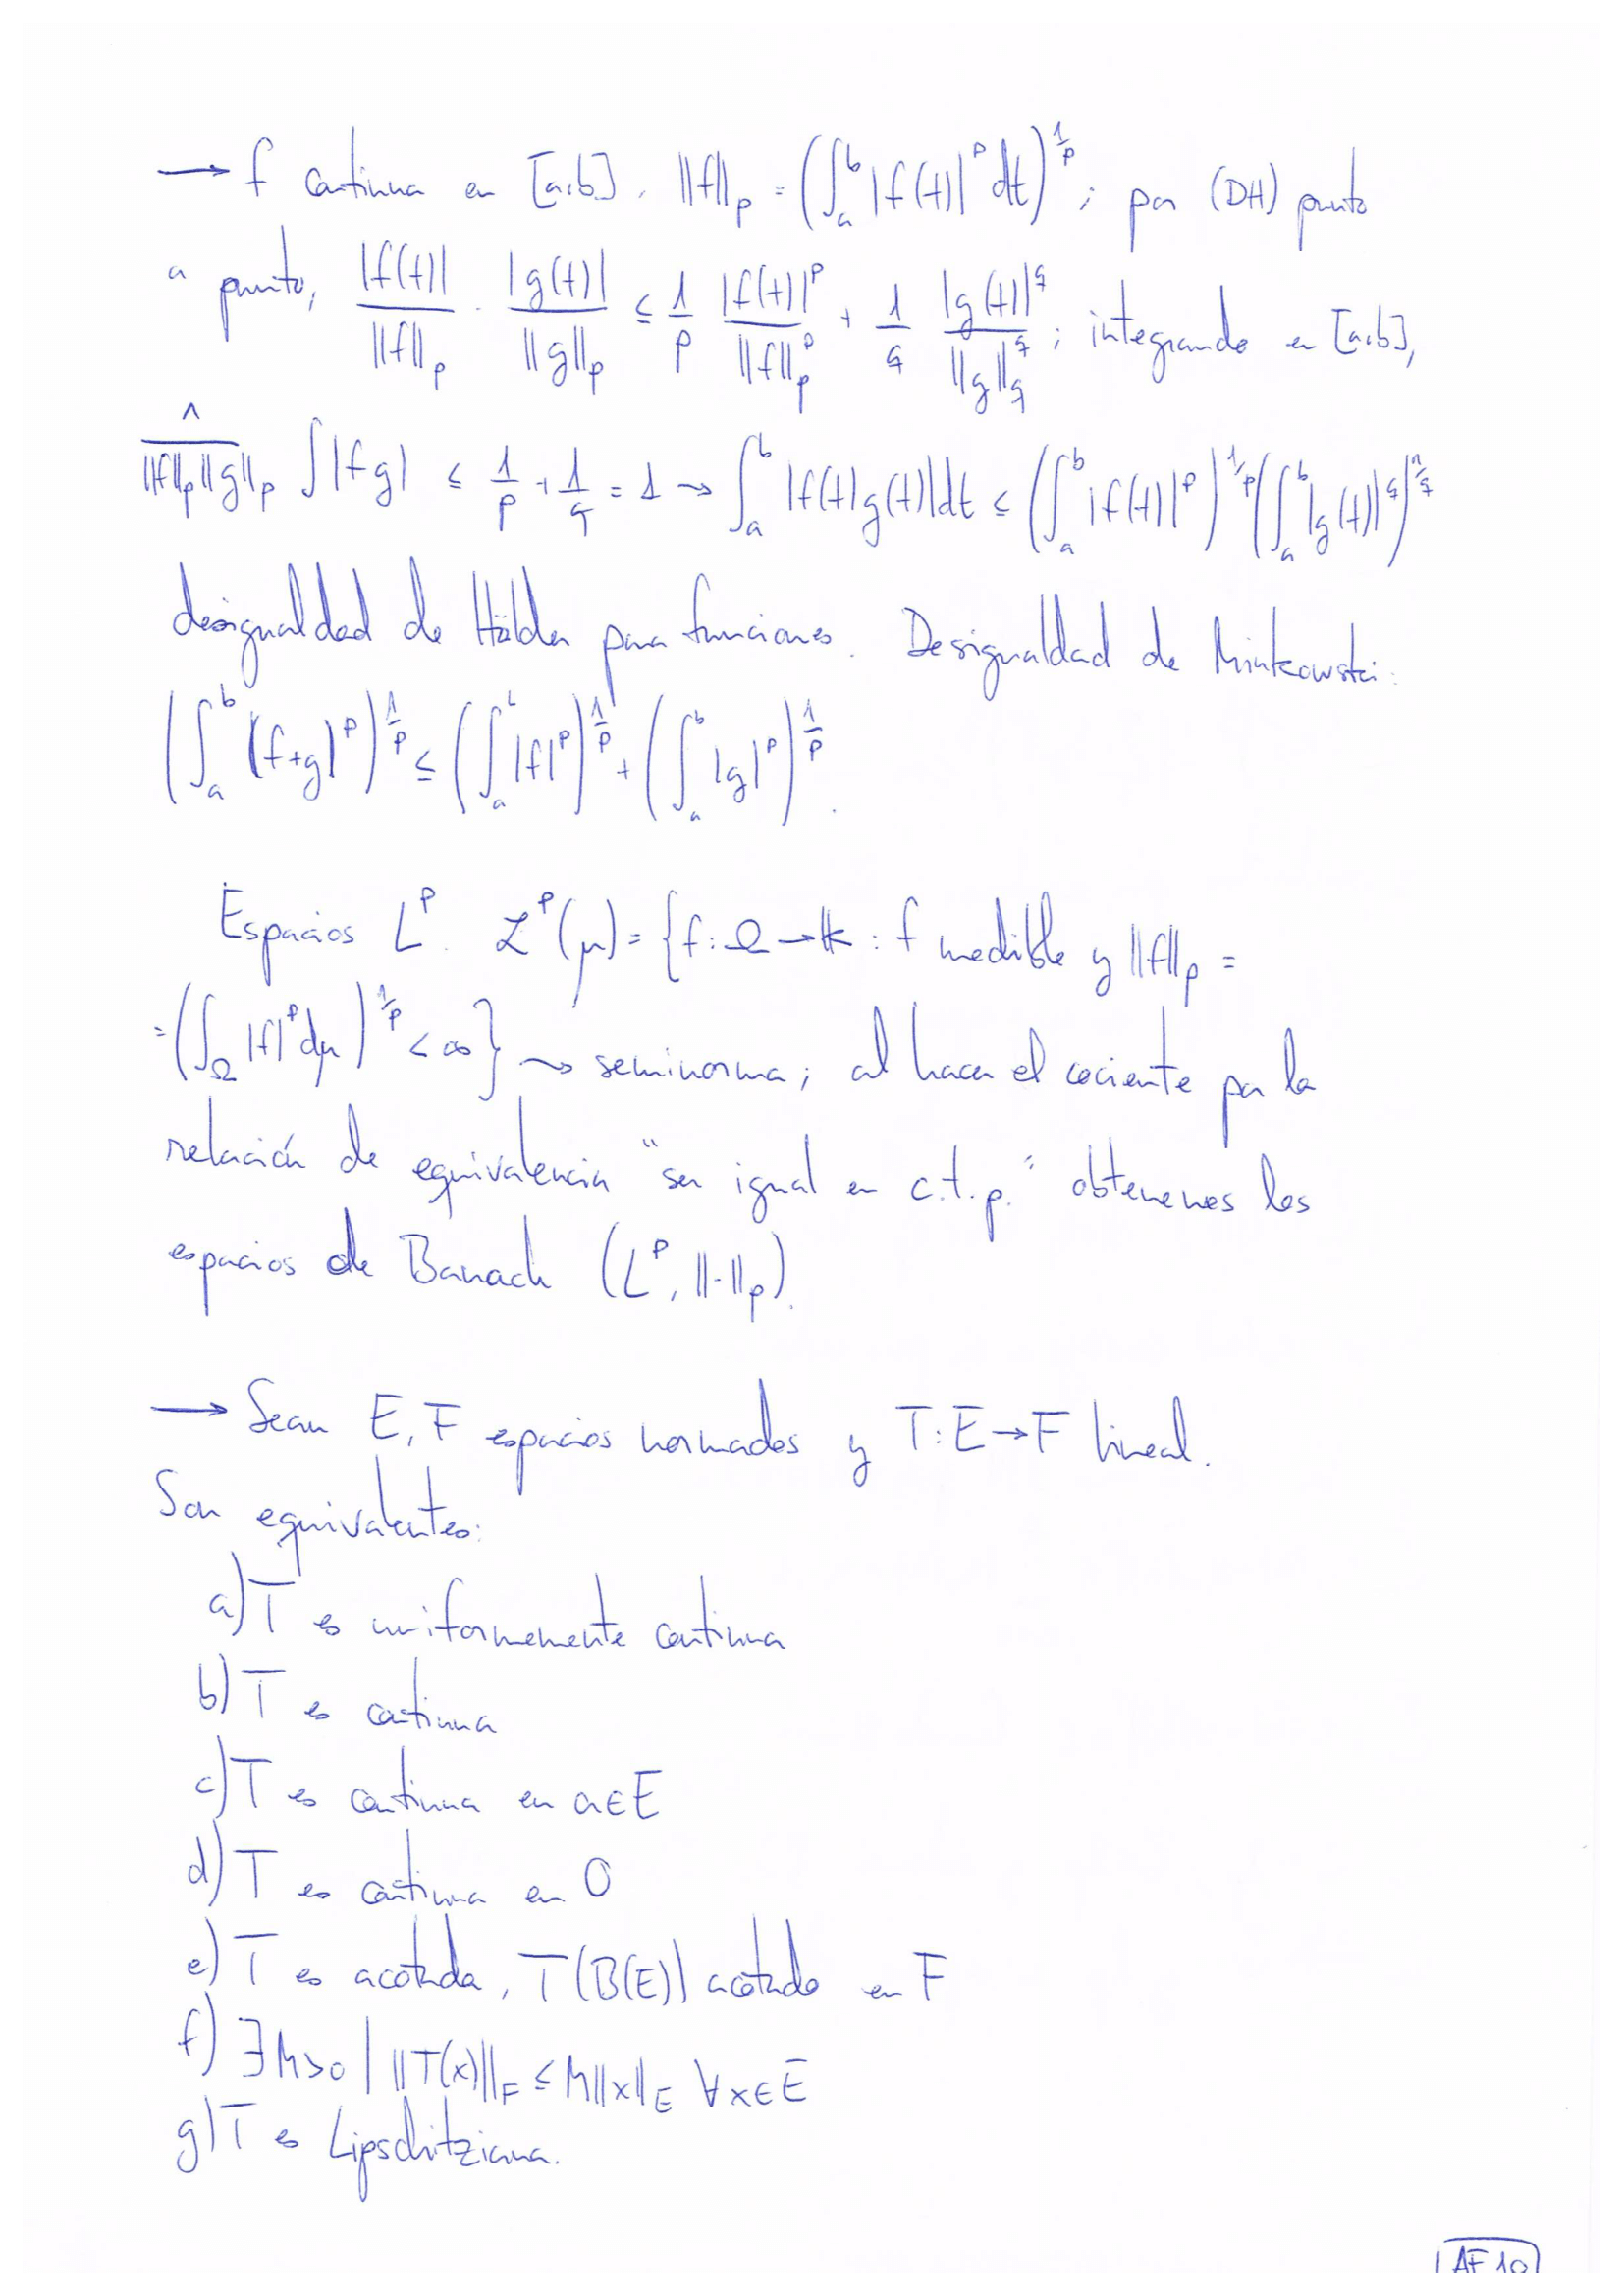 → f continua en [a,b], ||f||_p = (∫_a^b |f(t)|^p dt)^{1/p}; por (DH) punto
a punto, |f(t)|/||f||_p · |g(t)|/||g||_p ≤ 1/p |f(t)|^p/||f||_p^p + 1/q |g(t)|^q/||g||_q^q; integrando en [a,b],
1/(||f||_p ||g||_p) ∫|fg| ≤ 1/p + 1/q = 1 ⇝ ∫_a^b |f(t)g(t)|dt ≤ (∫_a^b |f(t)|^p)^{1/p} (∫_a^b |g(t)|^q)^{1/q}
desigualdad de Hölder para funciones. Desigualdad de Minkowski:
(∫_a^b |f+g|^p)^{1/p} ≤ (∫_a^b |f|^p)^{1/p} + (∫_a^b |g|^p)^{1/p}.
Espacios L^p. ℒ^p(μ) = {f: Ω → 𝕂 : f medible y ||f||_p =
= (∫_Ω |f|^p dμ)^{1/p} < ∞} ⇝ seminorma; al hacer el cociente por la
relación de equivalencia "ser igual en c.t.p." obtenemos los
espacios de Banach (L^p, ||·||_p).
→ Sean E, F espacios normados y T: E → F lineal.
Son equivalentes:
a) T es uniformemente continua
b) T es continua
c) T es continua en a∈E
d) T es continua en 0
e) T es acotada, T(B(E)) acotado en F
f) ∃M>0 | ||T(x)||_F ≤ M||x||_E ∀x∈E
g) T es Lipschitziana.
AF 10